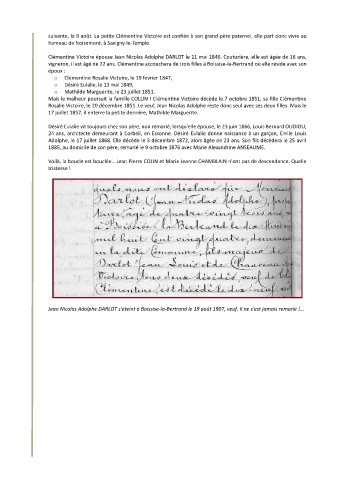 suivante, le 9 août. La petite Clémentine Victoire est confiée à son grand-père paternel, elle part donc vivre au
hameau de Noisement, à Savigny-le-Temple.
Clémentine Victoire épouse Jean Nicolas Adolphe DARLOT le 11 mai 1846. Couturière, elle est âgée de 16 ans,
vigneron, il est âgé de 22 ans. Clémentine accouchera de trois filles à Boissise-la-Bertrand où elle réside avec son
époux :
o Clémentine Rosalie Victoire, le 19 février 1847,
o Désiré Eulalie, le 13 mai 1849,
o Mathilde Marguerite, le 23 juillet 1851.
Mais le malheur poursuit la famille COLLIN ! Clémentine Victoire décède le 7 octobre 1851, sa fille Clémentine
Rosalie Victoire, le 20 décembre 1851. Le veuf, Jean Nicolas Adolphe reste donc seul avec ses deux filles. Mais le
17 juillet 1857, il enterre la petite dernière, Mathilde Marguerite.
Désiré Eulalie vit toujours chez son père, non remarié, lorsqu'elle épouse, le 23 juin 1866, Louis Bernard OUDIOU,
24 ans, architecte demeurant à Corbeil, en Essonne. Désiré Eulalie donne naissance à un garçon, Emile Louis
Adolphe, le 17 juillet 1868. Elle décède le 3 décembre 1872, alors âgée de 23 ans. Son fils décèdera le 25 avril
1885, au domicile de son père, remarié le 9 octobre 1876 avec Marie Alexandrine ANSEAUME.
Voilà, la boucle est bouclée... Jean Pierre COLIN et Marie Jeanne CHAMBLAIN n'ont pas de descendance. Quelle
tristesse !
quels nous ont déclaré que
Darlot (Jean Nicolas Adolphe),
âgé de quatre vingt trois ans,
à Boissise la Bertrand le dix
mil huit cent vingt quatre,
en la dite Commune, fils majeur de
Darlot Jean Louis et de Chauveau
Victoire, tous deux décédés, veuf de
Clémentine, est décédé le dix neuf
Jean Nicolas Adolphe DARLOT s'éteint à Boissise-la-Bertrand le 19 août 1907, veuf. Il ne s'est jamais remarié !...